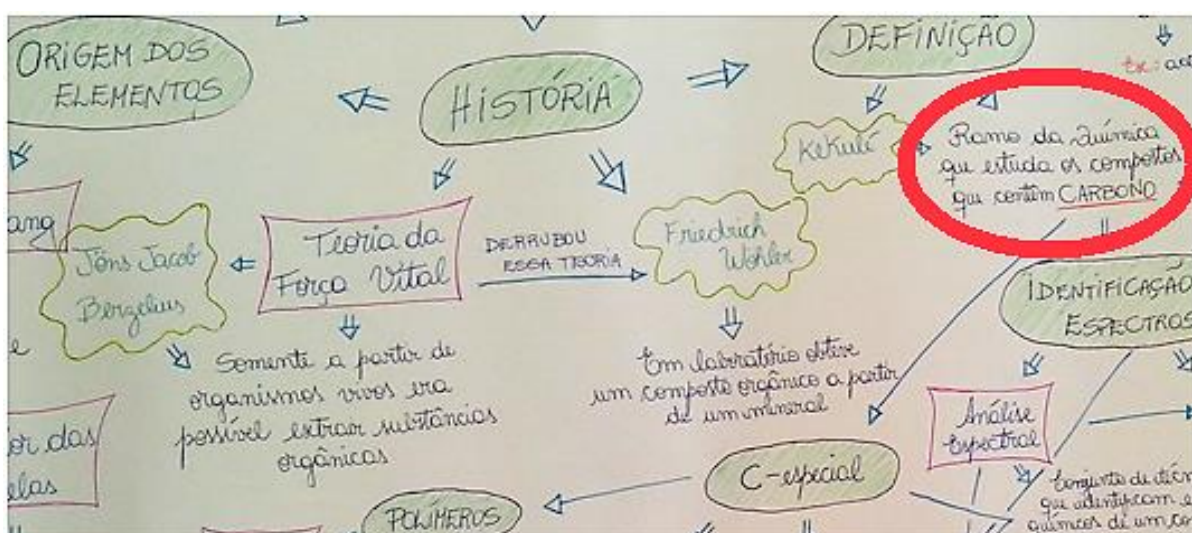 ORIGEM DOS
ELEMENTOS
HISTÓRIA
DEFINIÇÃO
Ex:
Kekulé
Ramo da Química
que estuda os compostos
que contém CARBONO
ang
Jöns Jacob
Berzelius
Teoria da
Força Vital
DERRUBOU
ESSA TEORIA
Friedrich
Wöhler
IDENTIFICAÇÃO
ESPECTROS
e
Somente a partir de
organismos vivos era
possível extrair substâncias
orgânicas
Em laboratório obteve
um composto orgânico a partir
de um mineral
Análise
Espectral
or das
elas
C-especial
POLÍMEROS
Conjunto de técn
que identificam e
químicos de um co